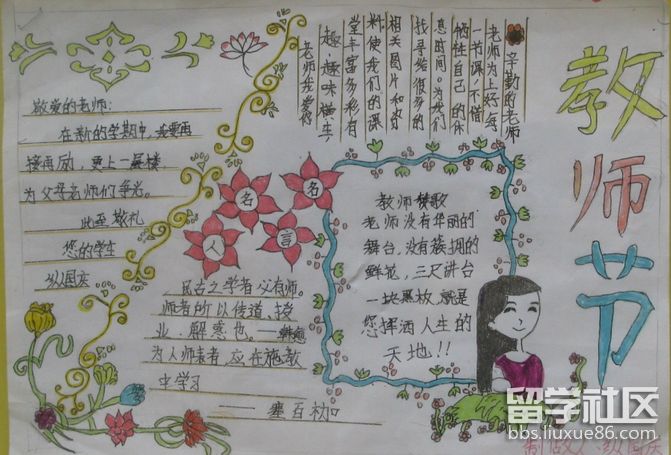 教师节
辛勤的老师
老师为上好每
一节课,不惜
牺牲自己的休
息时间。为我们
找寻给很多的
相关图片和好
料,使我们的课
堂丰富多彩有
趣,趣味横生
老师我爱你
敬爱的老师:
在新的学期中,我要再
接再励,更上一层楼,
为父母老师们争光。
此至敬礼
您的学生
纵国庆
名人名言
古之学者必有师。
师者所以传道,授
业,解惑也。——韩愈
为人师表者,应在施教
中学习
教师赞歌
老师没有华丽的
舞台,没有簇拥的
鲜花,三尺讲台
一块黑板,就是
您挥洒人生的
天地!!
留学社区
bbs.liuxue86.com
制做人:纵国庆